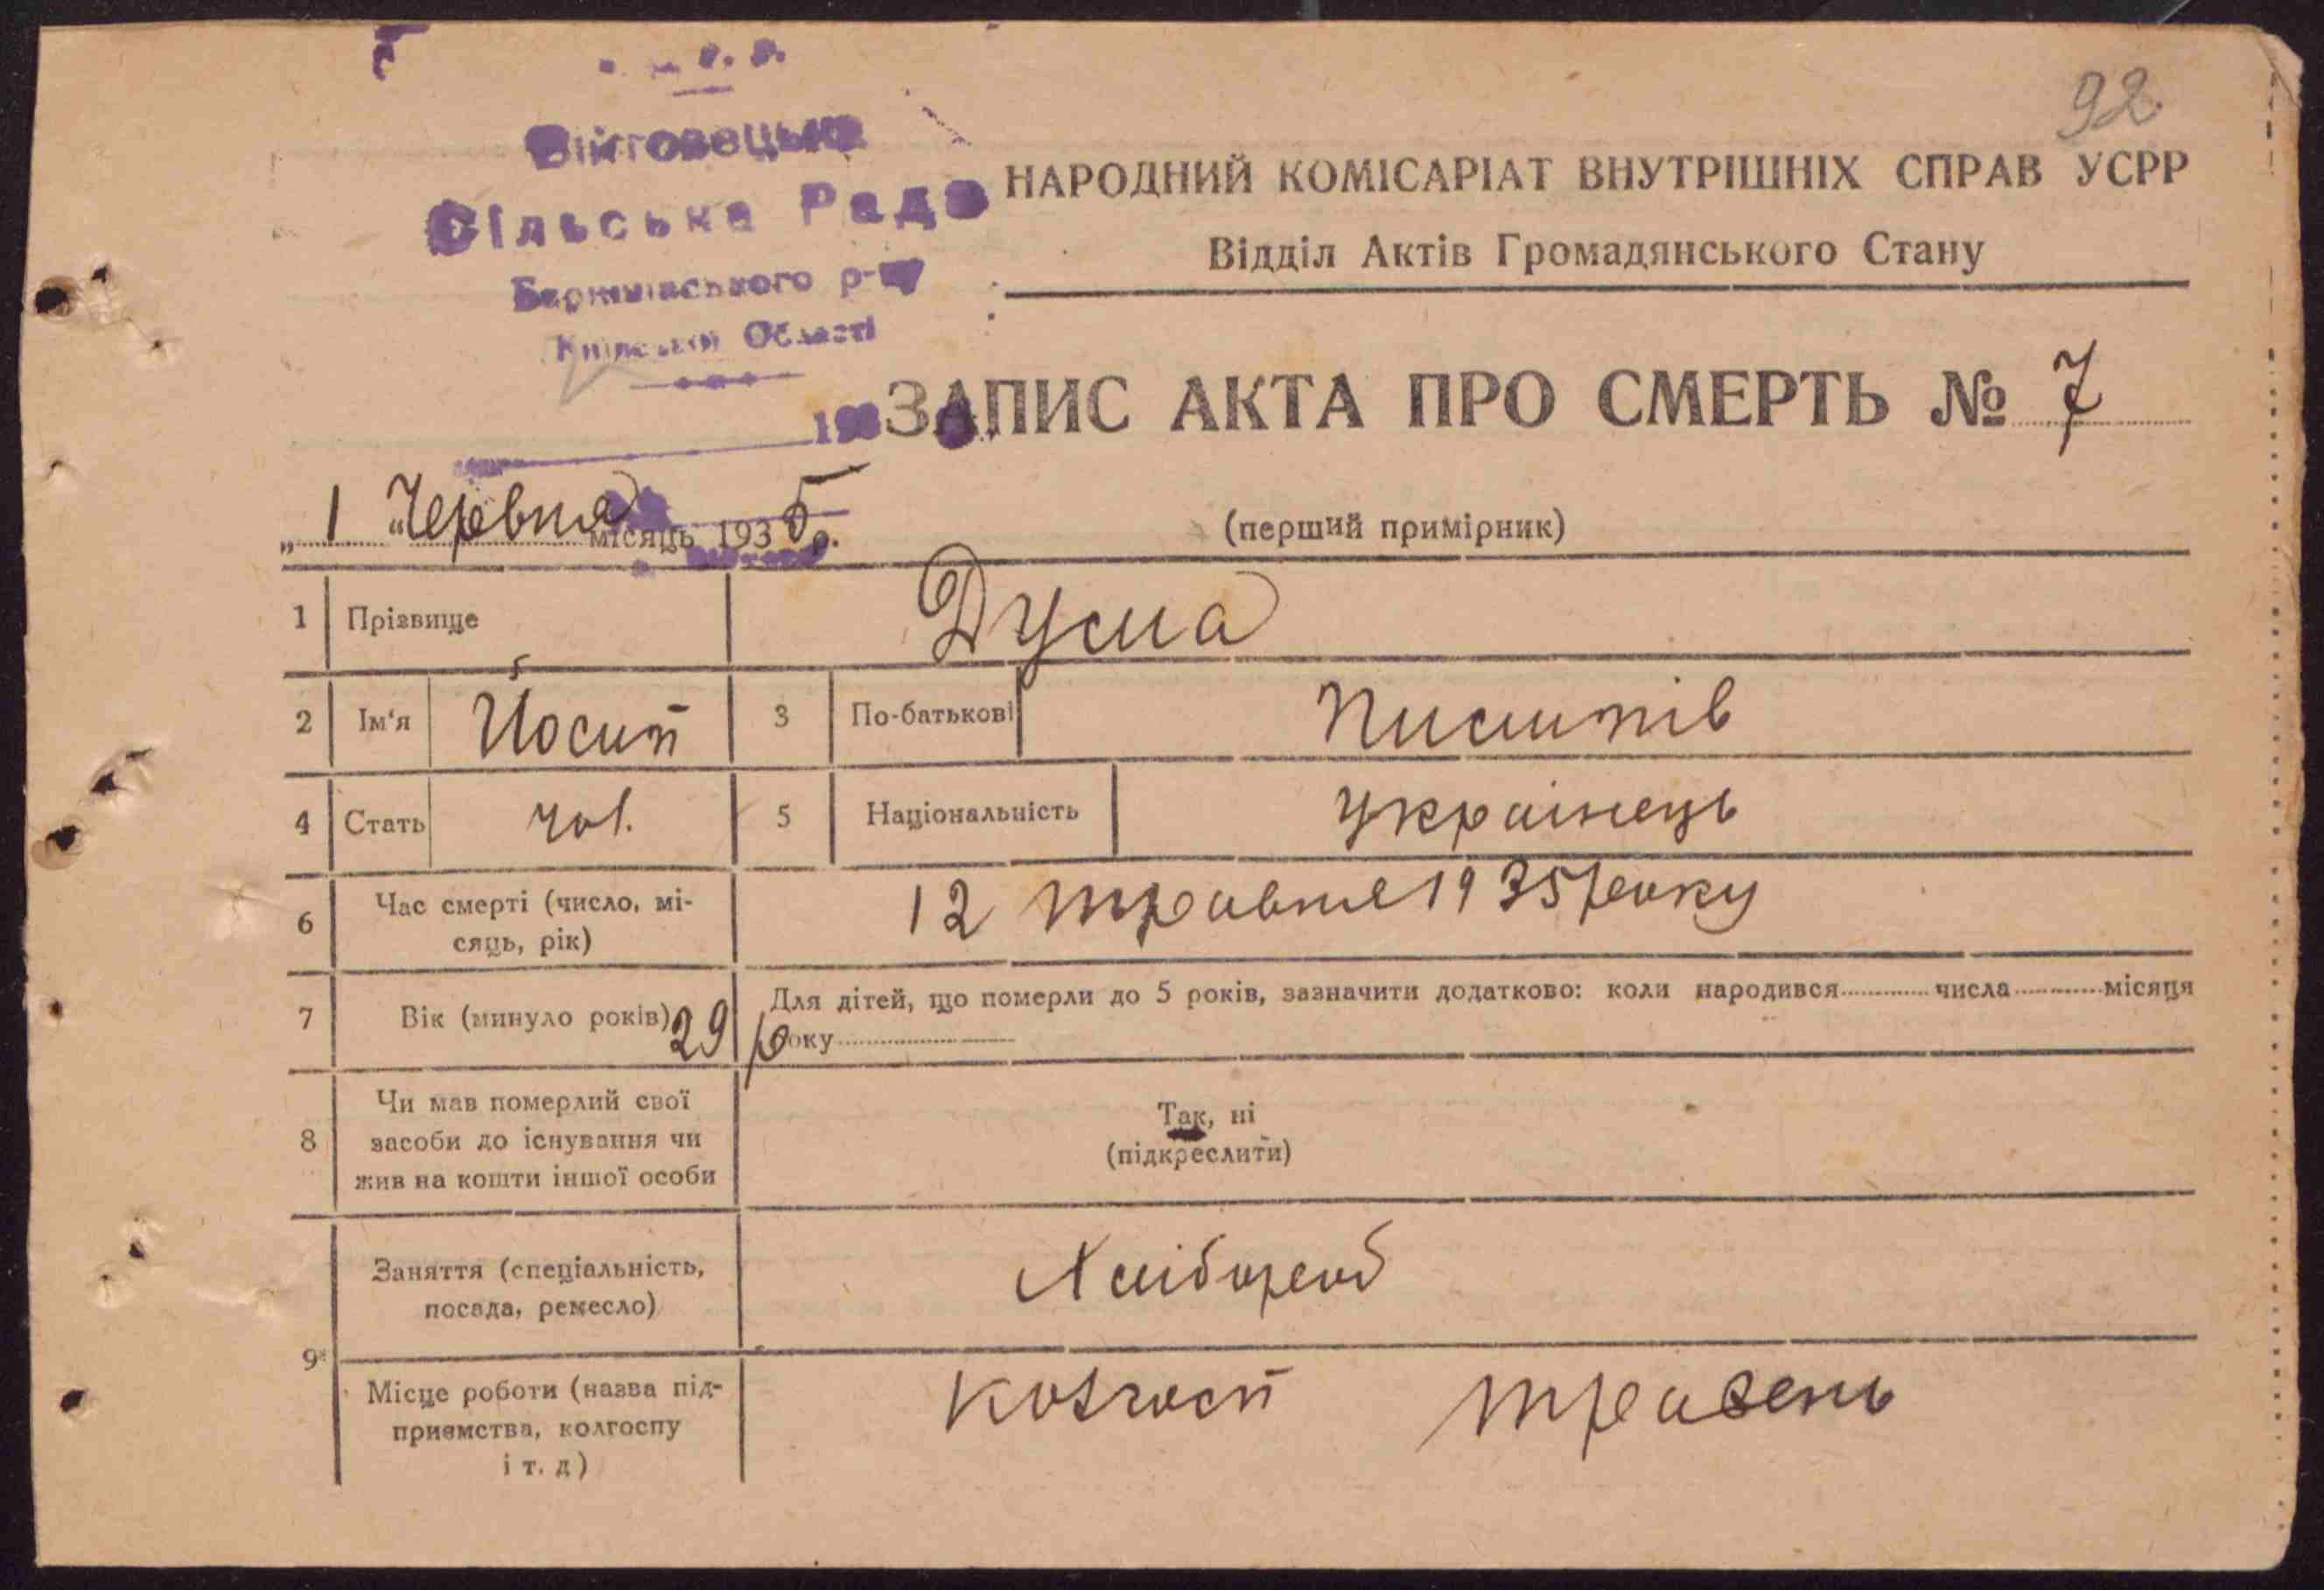 92
Війтовецька
Сільська Рада
р-ну
Області
НАРОДНИЙ КОМІСАРІАТ ВНУТРІШНІХ СПРАВ УСРР
Відділ Актів Громадянського Стану
193
ЗАПИС АКТА ПРО СМЕРТЬ № 7
„ 1 “ Червня місяць 1935 р.
(перший примірник)
1 Прізвище Дума
2 Ім'я Йосип 3 По-батькові
4 Стать чол. 5 Національність Українець
6 Час смерті (число, мі-
сяць, рік) 12 травня 1935 року
7 Вік (минуло років) 29 р Для дітей, що померли до 5 років, зазначити додатково: коли народився числа місяця
року
8 Чи мав померлий свої
засоби до існування чи
жив на кошти іншої особи
Так, ні
(підкреслити)
9 Заняття (спеціальність,
посада, ремесло) Хлібороб
Місце роботи (назва під-
приємства, колгоспу
і т. д) Колгосп травень